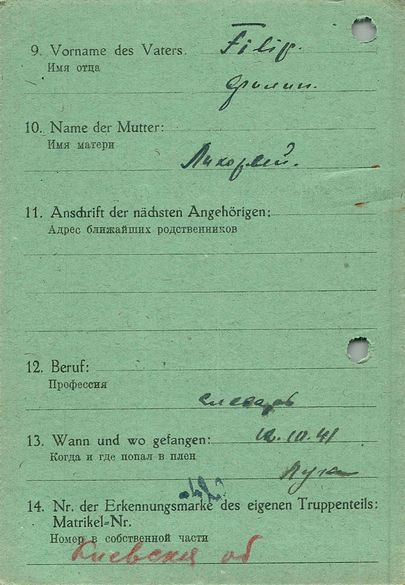 9. Vorname des Vaters: Filip
Имя отца
Филип.
10. Name der Mutter:
Имя матери
11. Anschrift der nächsten Angehörigen:
Адрес ближайших родственников
12. Beruf:
Профессия
слесарь
13. Wann und wo gefangen:
Когда и где попал в плен
14. Nr. der Erkennungsmarke des eigenen Truppenteils:
Matrikel-Nr.
Номер в собственной части
Киевская об